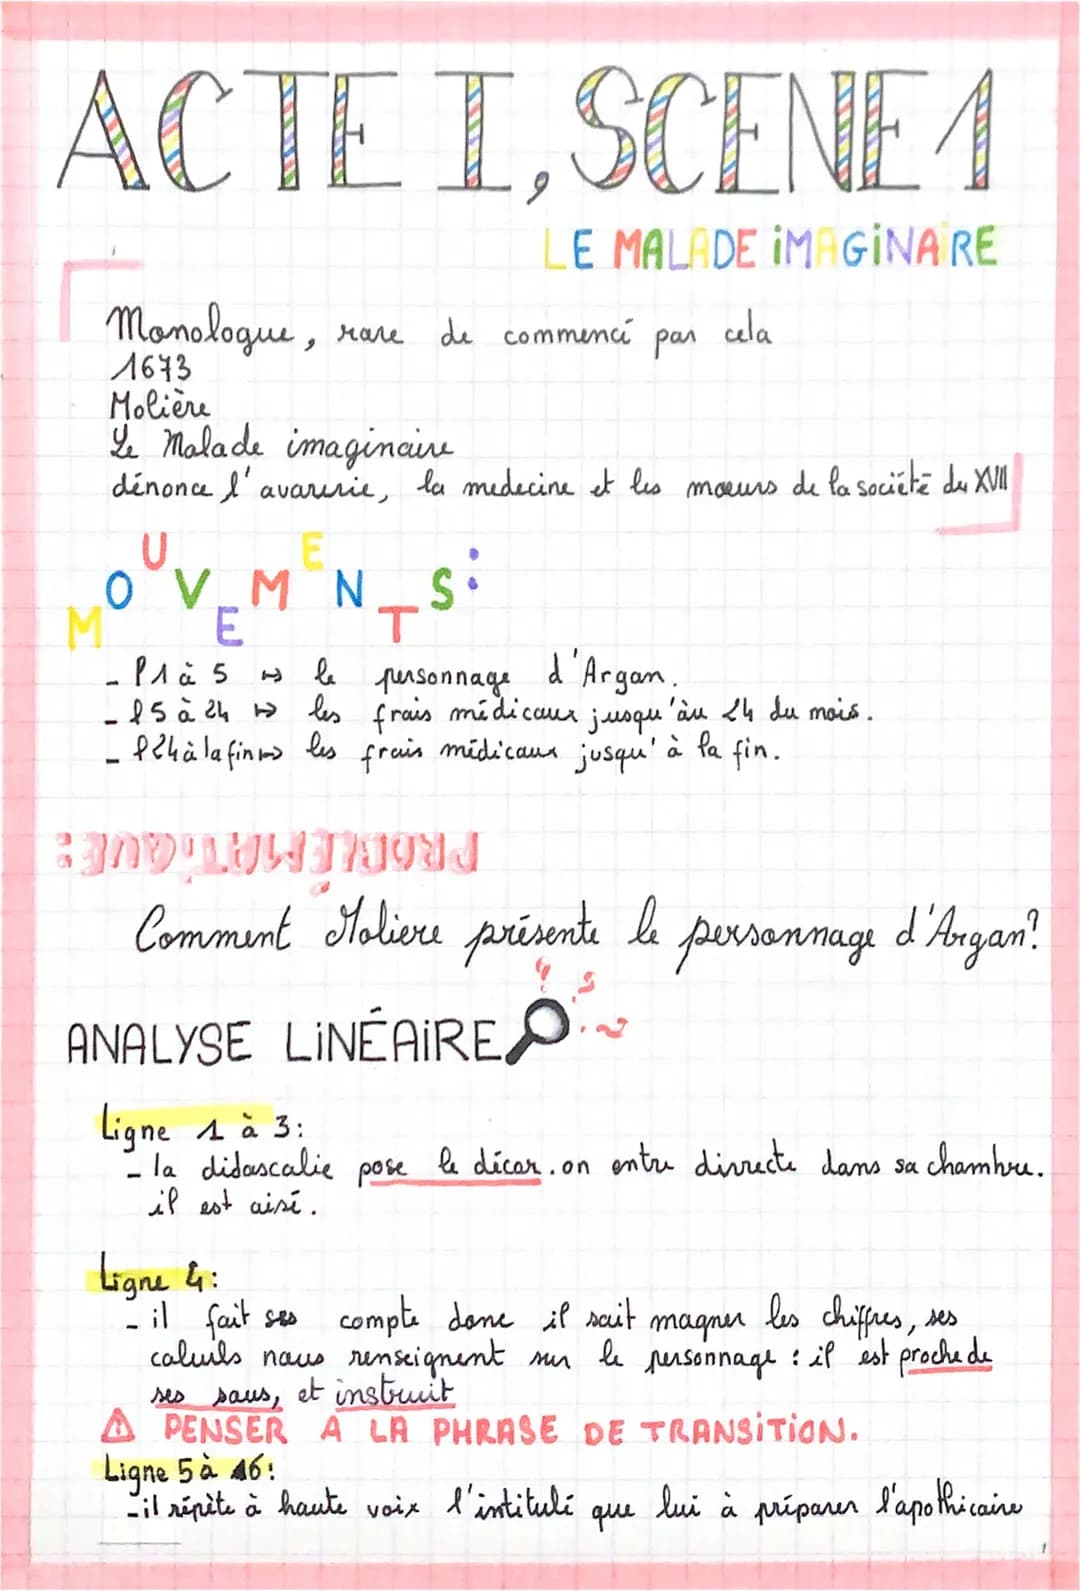 ACTE I, SCENE 1
LE MALADE iMAGiNAiRE
Monologue, rare de commencé par cela
1673
Molière
Le Malade imaginaire
dénonce l'avarerie, la medecine et les mœurs de la société du XVII
MOUVEMENTS:
- l 1 à 5 ↦ le personnage d'Argan.
- l 5 à 24 ↦ les frais médicaux jusqu'àu 24 du mois.
- l 24 à la fin ↦ les frais médicaux jusqu'à la fin.
PROBLÉMATiQUE:
Comment Moliere présente le personnage d'Argan?
ANALYSE LiNÉAiRE
Ligne 1 à 3:
- la didascalie pose le décor. on entre dirrecte dans sa chambre.
il est aisé.
Ligne 4:
- il fait ses compte donc il sait magner les chiffres, ses
calculs nous renseignent sur le personnage : il est proche de
ses sous, et instruit
⚠ PENSER A LA PHRASE DE TRANSiTiON.
Ligne 5 à 16:
- il répète à haute voix l'intitulé que lui à préparer l'apothicaire
1